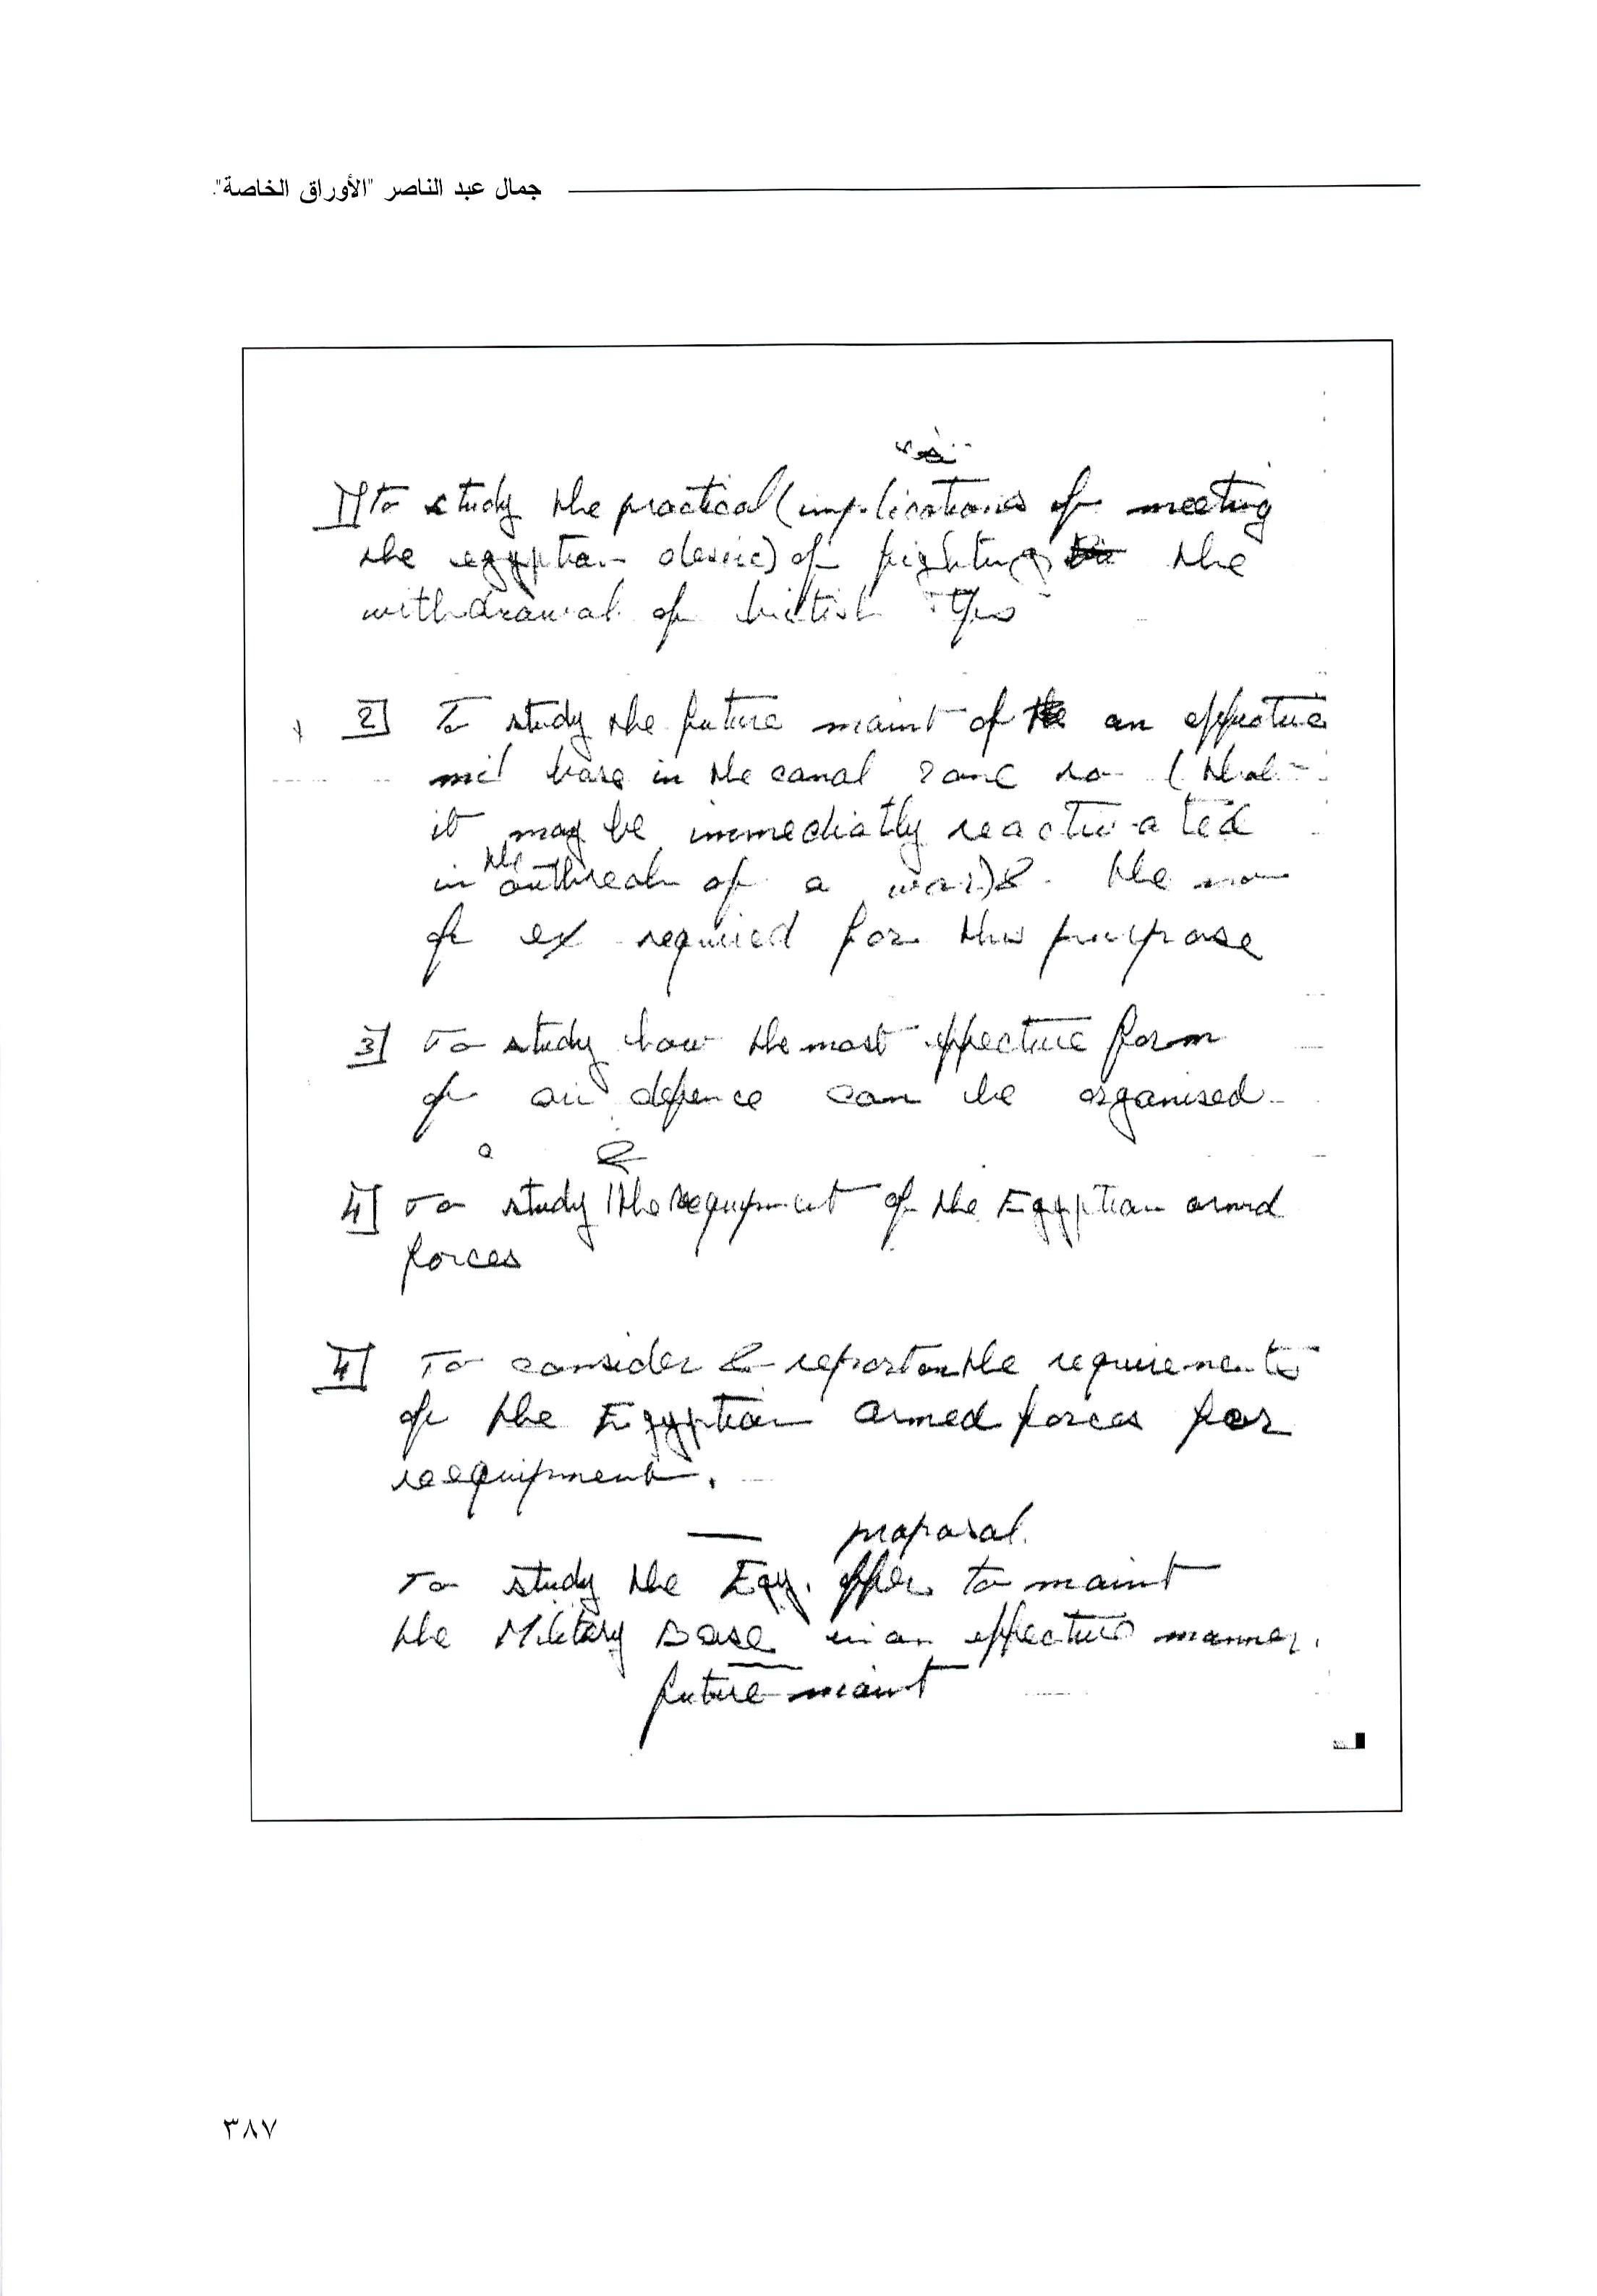 جمال عبد الناصر "الأوراق الخاصة".
1] to study the practical (implications of meeting
the egyptian desire) of the
withdrawal of british
2] To study the future maint of an effective
mil base in the canal zone so (that
it may be immediatly reactivated
in the outbreak of a war) & the no
of ex required for this purpose
3] To study how the most effective form
of air defence can be organised
4] To study the equipment of the Egyptian armed
forces
4] To consider & report on the requirements
of the Egyptian armed forces for
reequipment.
proposal.
To study the Egy. offer to maint
the Military Base in an effective manner.
future maint
٣٨٧